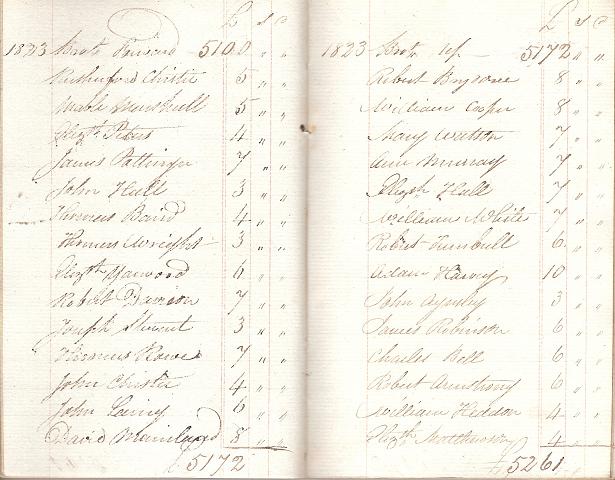 £ s d
1823 Brot. Forward 5100 " "
Rutherford Christie 5 " "
Mark Marshall 5 " "
Elizth. Peters 4 " "
James Pattinson 7 " "
John Hull 3 " "
Thomas Baird 4 " "
Thomas Wright 3 " "
Elizth. Yarwood 6 " "
Robert Davison 7 " "
Joseph Stewart 3 " "
Thomas Rowe 7 " "
John Christie 4 " "
John Laing 6 " "
David Mainland 8 " "
£5172
£ s d
1823 Brot. up 5172 " "
Robert Brysone 8 " "
William Cooper 8 " "
Mary Watson 7 " "
Ann Murray 7 " "
Elizth. Hall 7 " "
William White 7 " "
Robert Turnbull 6 " "
Adam Harvey 10 " "
John Aynsley 3 " "
James Robinson 6 " "
Charles Bell 6 " "
Robert Armstrong 6 " "
William Heddon 4 " "
Elizth. 4 " "
£5261